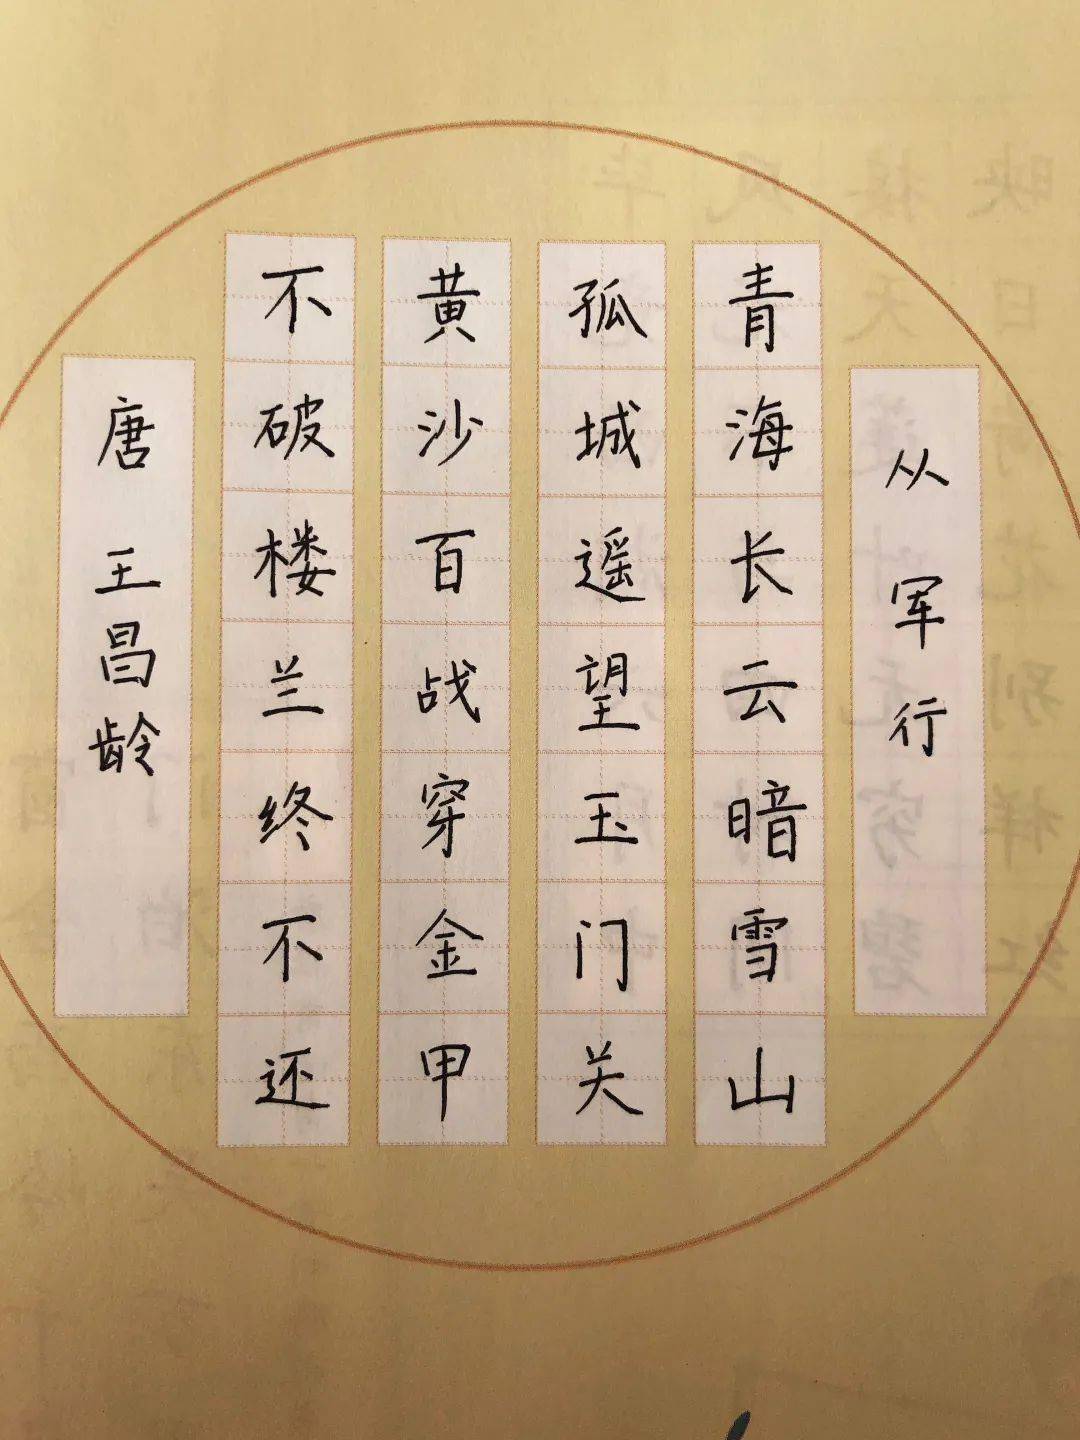 从军行
青海长云暗雪山
孤城遥望玉门关
黄沙百战穿金甲
不破楼兰终不还
唐 王昌龄